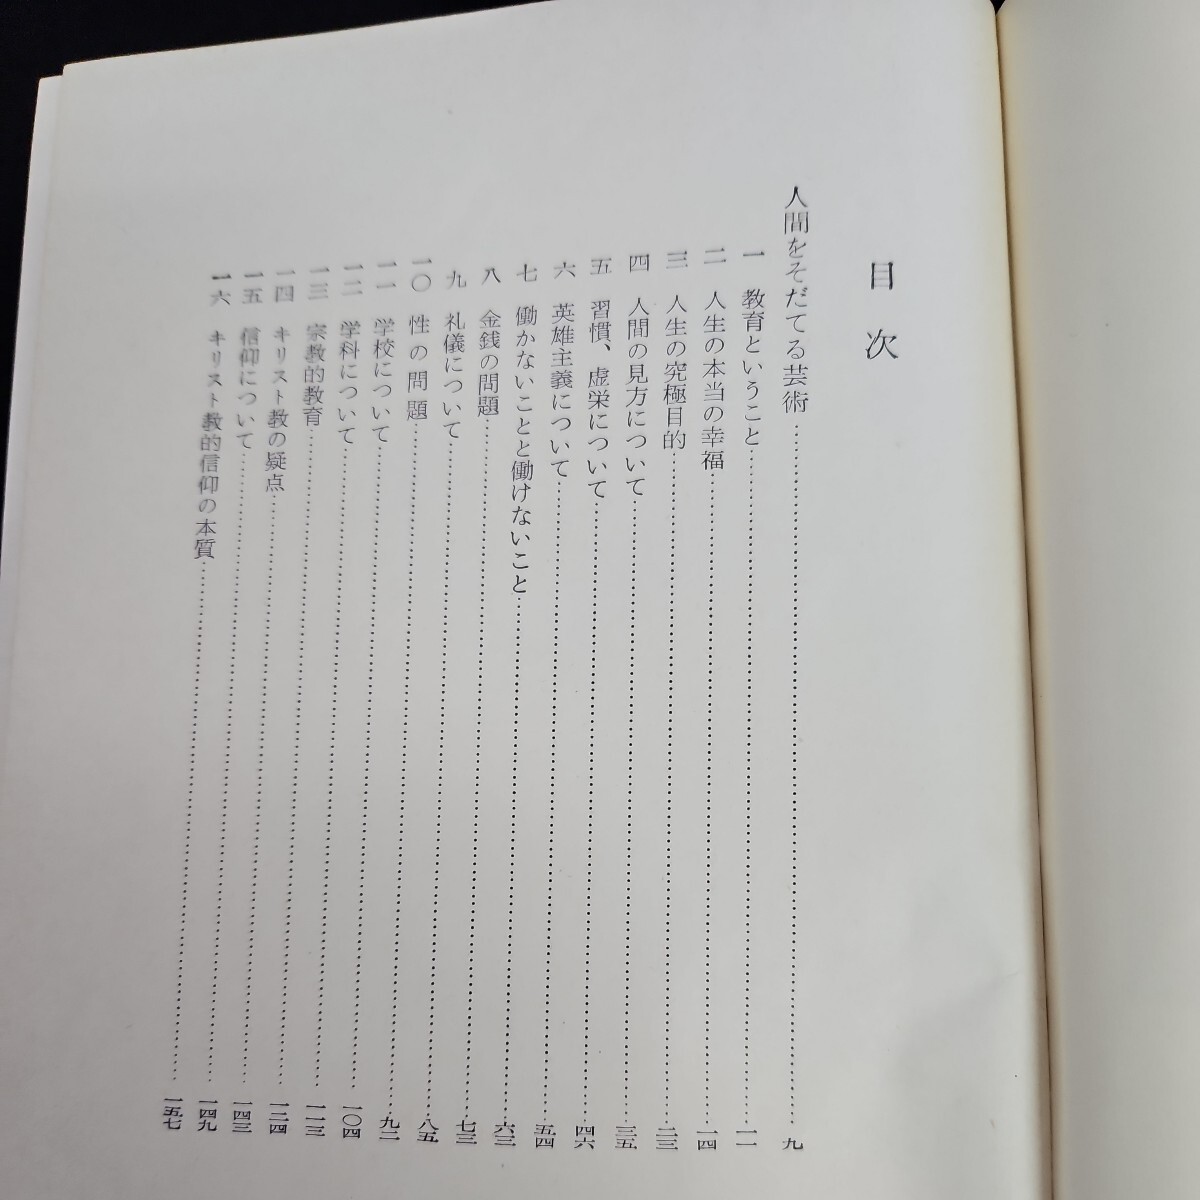 目次
人間をそだてる芸術……九
一 教育ということ……一一
二 人生の本当の幸福……一四
三 人生の究極目的……二三
四 人間の見方について……三五
五 習慣、虚栄について……四六
六 英雄主義について……五四
七 働かないことと働けないこと……六三
八 金銭の問題……七三
九 礼儀について……八五
一〇 性の問題……九二
一一 学校について……一〇四
一二 学科について……一一三
一三 宗教的教育……一二四
一四 キリスト教の疑点……一四三
一五 信仰について……一四九
一六 キリスト教的信仰の本質……一五七